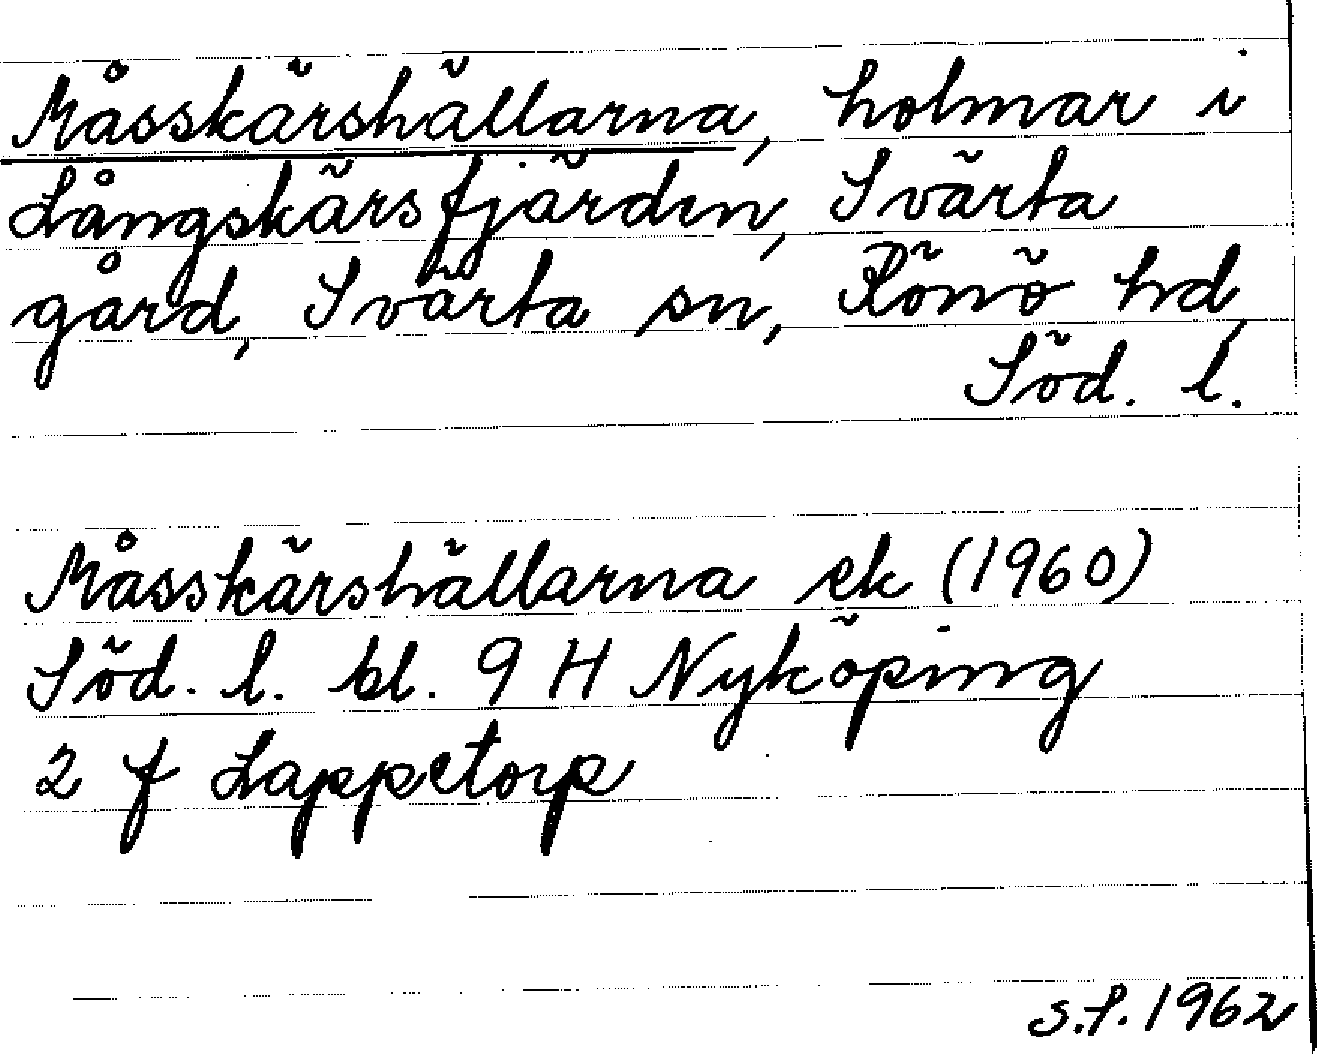 Måsskärshällarna, holmar i
Långskärsfjärden, Svärta
gård, Svärta sn, Rönö hd,
Söd. l.
Måsskärshällarna ek (1960)
Söd. l. bl. 9 H Nyköping
2 f Lappetorp
S.P. 1962